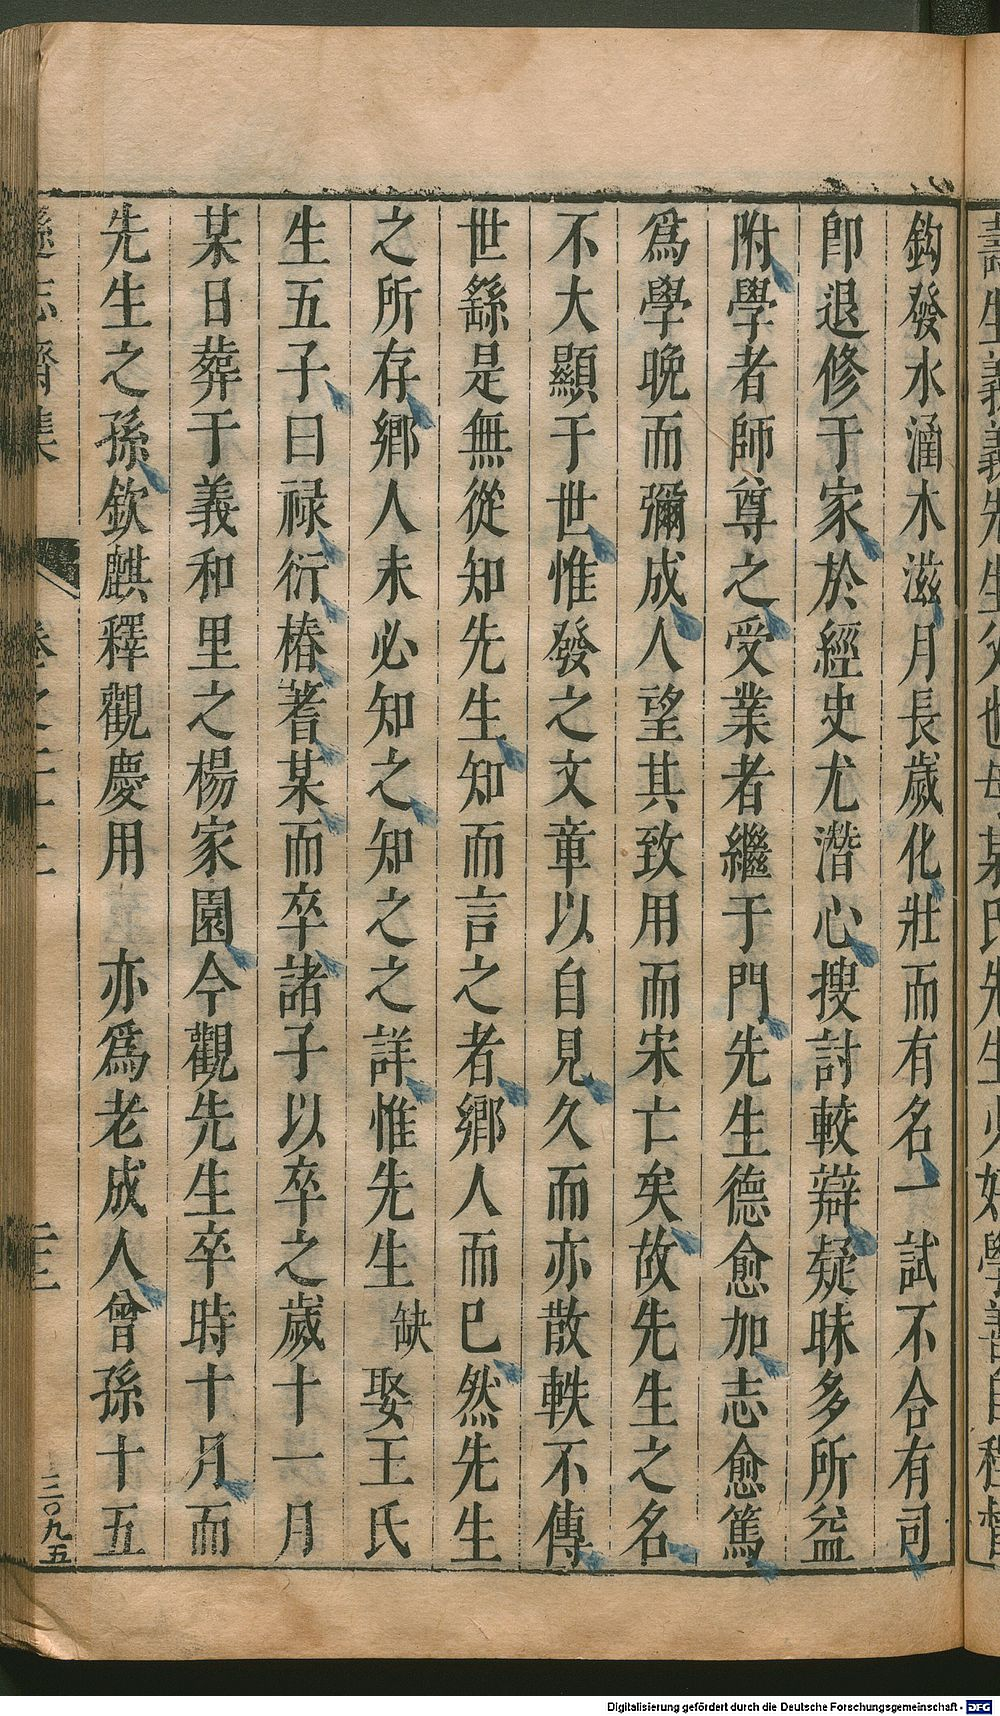 鈎發水涌木滋月長歲化壯而有名一試不合有司
即退修于家於經史尤潛心搜討較辯疑昧多所益
附學者師尊之受業者繼于門先生德愈加志愈篤
爲學晚而彌成人望其致用而宋亡矣故先生之名
不大顯于世惟發之文章以自見久而亦散軼不傳
世繇是無從知先生知而言之者鄉人而已然先生
之所存鄉人未必知之知之之詳惟先生 缺 娶王氏
生五子曰祿衍椿蓍某而卒諸子以卒之歲十一月
某日葬于義和里之楊家園今觀先生卒時十月而
先生之孫欽麒釋觀慶用 亦爲老成人曾孫十五
遜志齋集 卷之二十二 二三 二〇九五
Digitalisierung gefördert durch die Deutsche Forschungsgemeinschaft - DFG